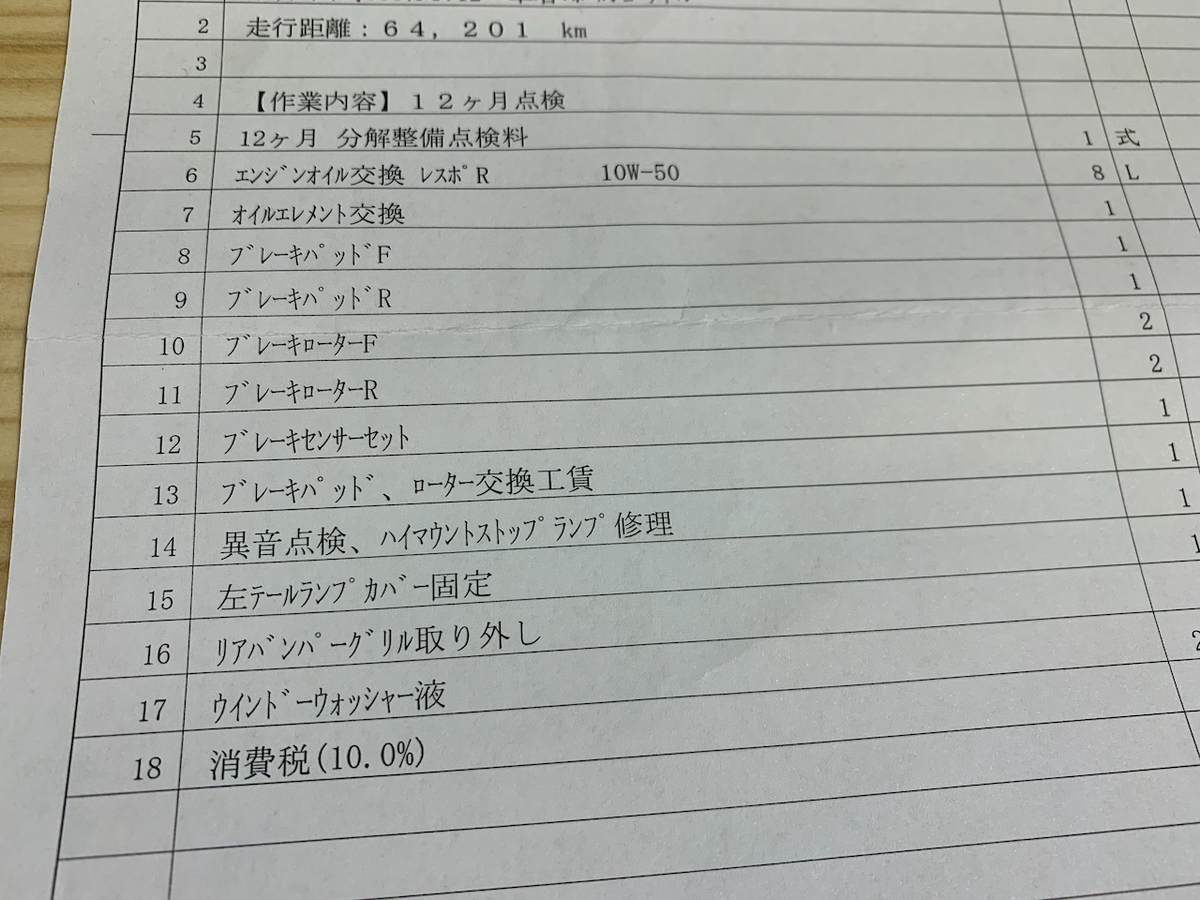 2 走行距離：６４，２０１ km
3
4 【作業内容】１２ヶ月点検
5 12ヶ月 分解整備点検料 1 式
6 ｴﾝｼﾞﾝｵｲﾙ交換 ﾚｽﾎﾟR 10W-50 8 L
7 ｵｲﾙｴﾚﾒﾝﾄ交換 1
8 ﾌﾞﾚｰｷﾊﾟｯﾄﾞF 1
9 ﾌﾞﾚｰｷﾊﾟｯﾄﾞR 1
10 ﾌﾞﾚｰｷﾛｰﾀｰF 2
11 ﾌﾞﾚｰｷﾛｰﾀｰR 2
12 ﾌﾞﾚｰｷｾﾝｻｰｾｯﾄ 1
13 ﾌﾞﾚｰｷﾊﾟｯﾄﾞ、ﾛｰﾀｰ交換工賃 1
14 異音点検、ﾊｲﾏｳﾝﾄｽﾄｯﾌﾟﾗﾝﾌﾟ修理 1
15 左ﾃｰﾙﾗﾝﾌﾟｶﾊﾞｰ固定 1
16 ﾘｱﾊﾞﾝﾊﾟｰｸﾞﾘﾙ取り外し
17 ｳｲﾝﾄﾞｰｳｫｯｼｬｰ液 2
18 消費税(10.0%)